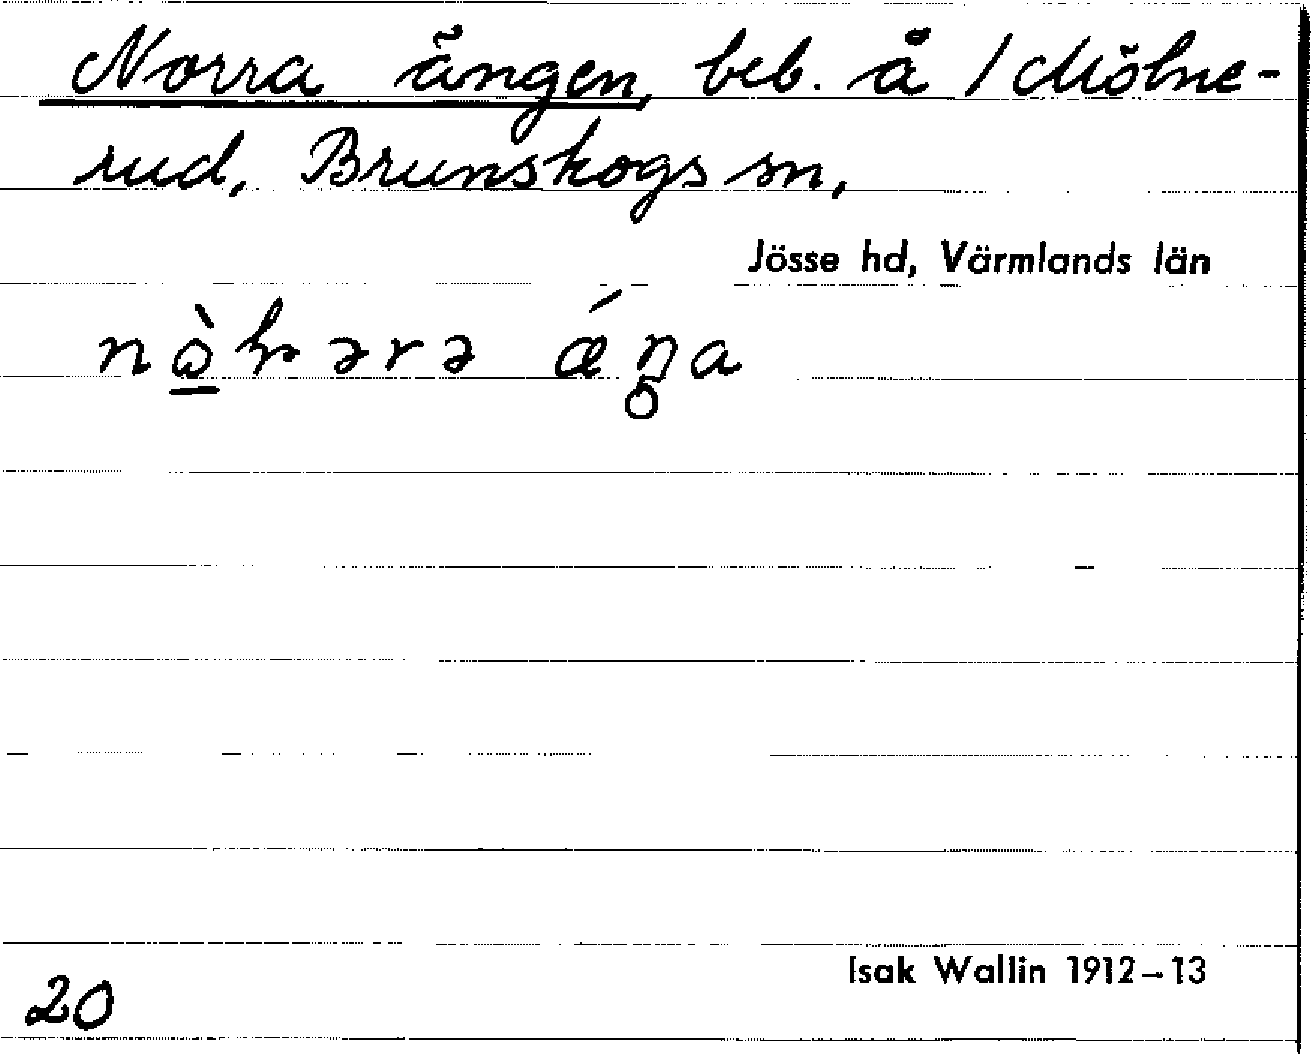 Norra ängen, beb. å 1 Mölne-
rud, Brunskogs sn,
Jösse hd, Värmlands län
Isak Wallin 1912–13
20